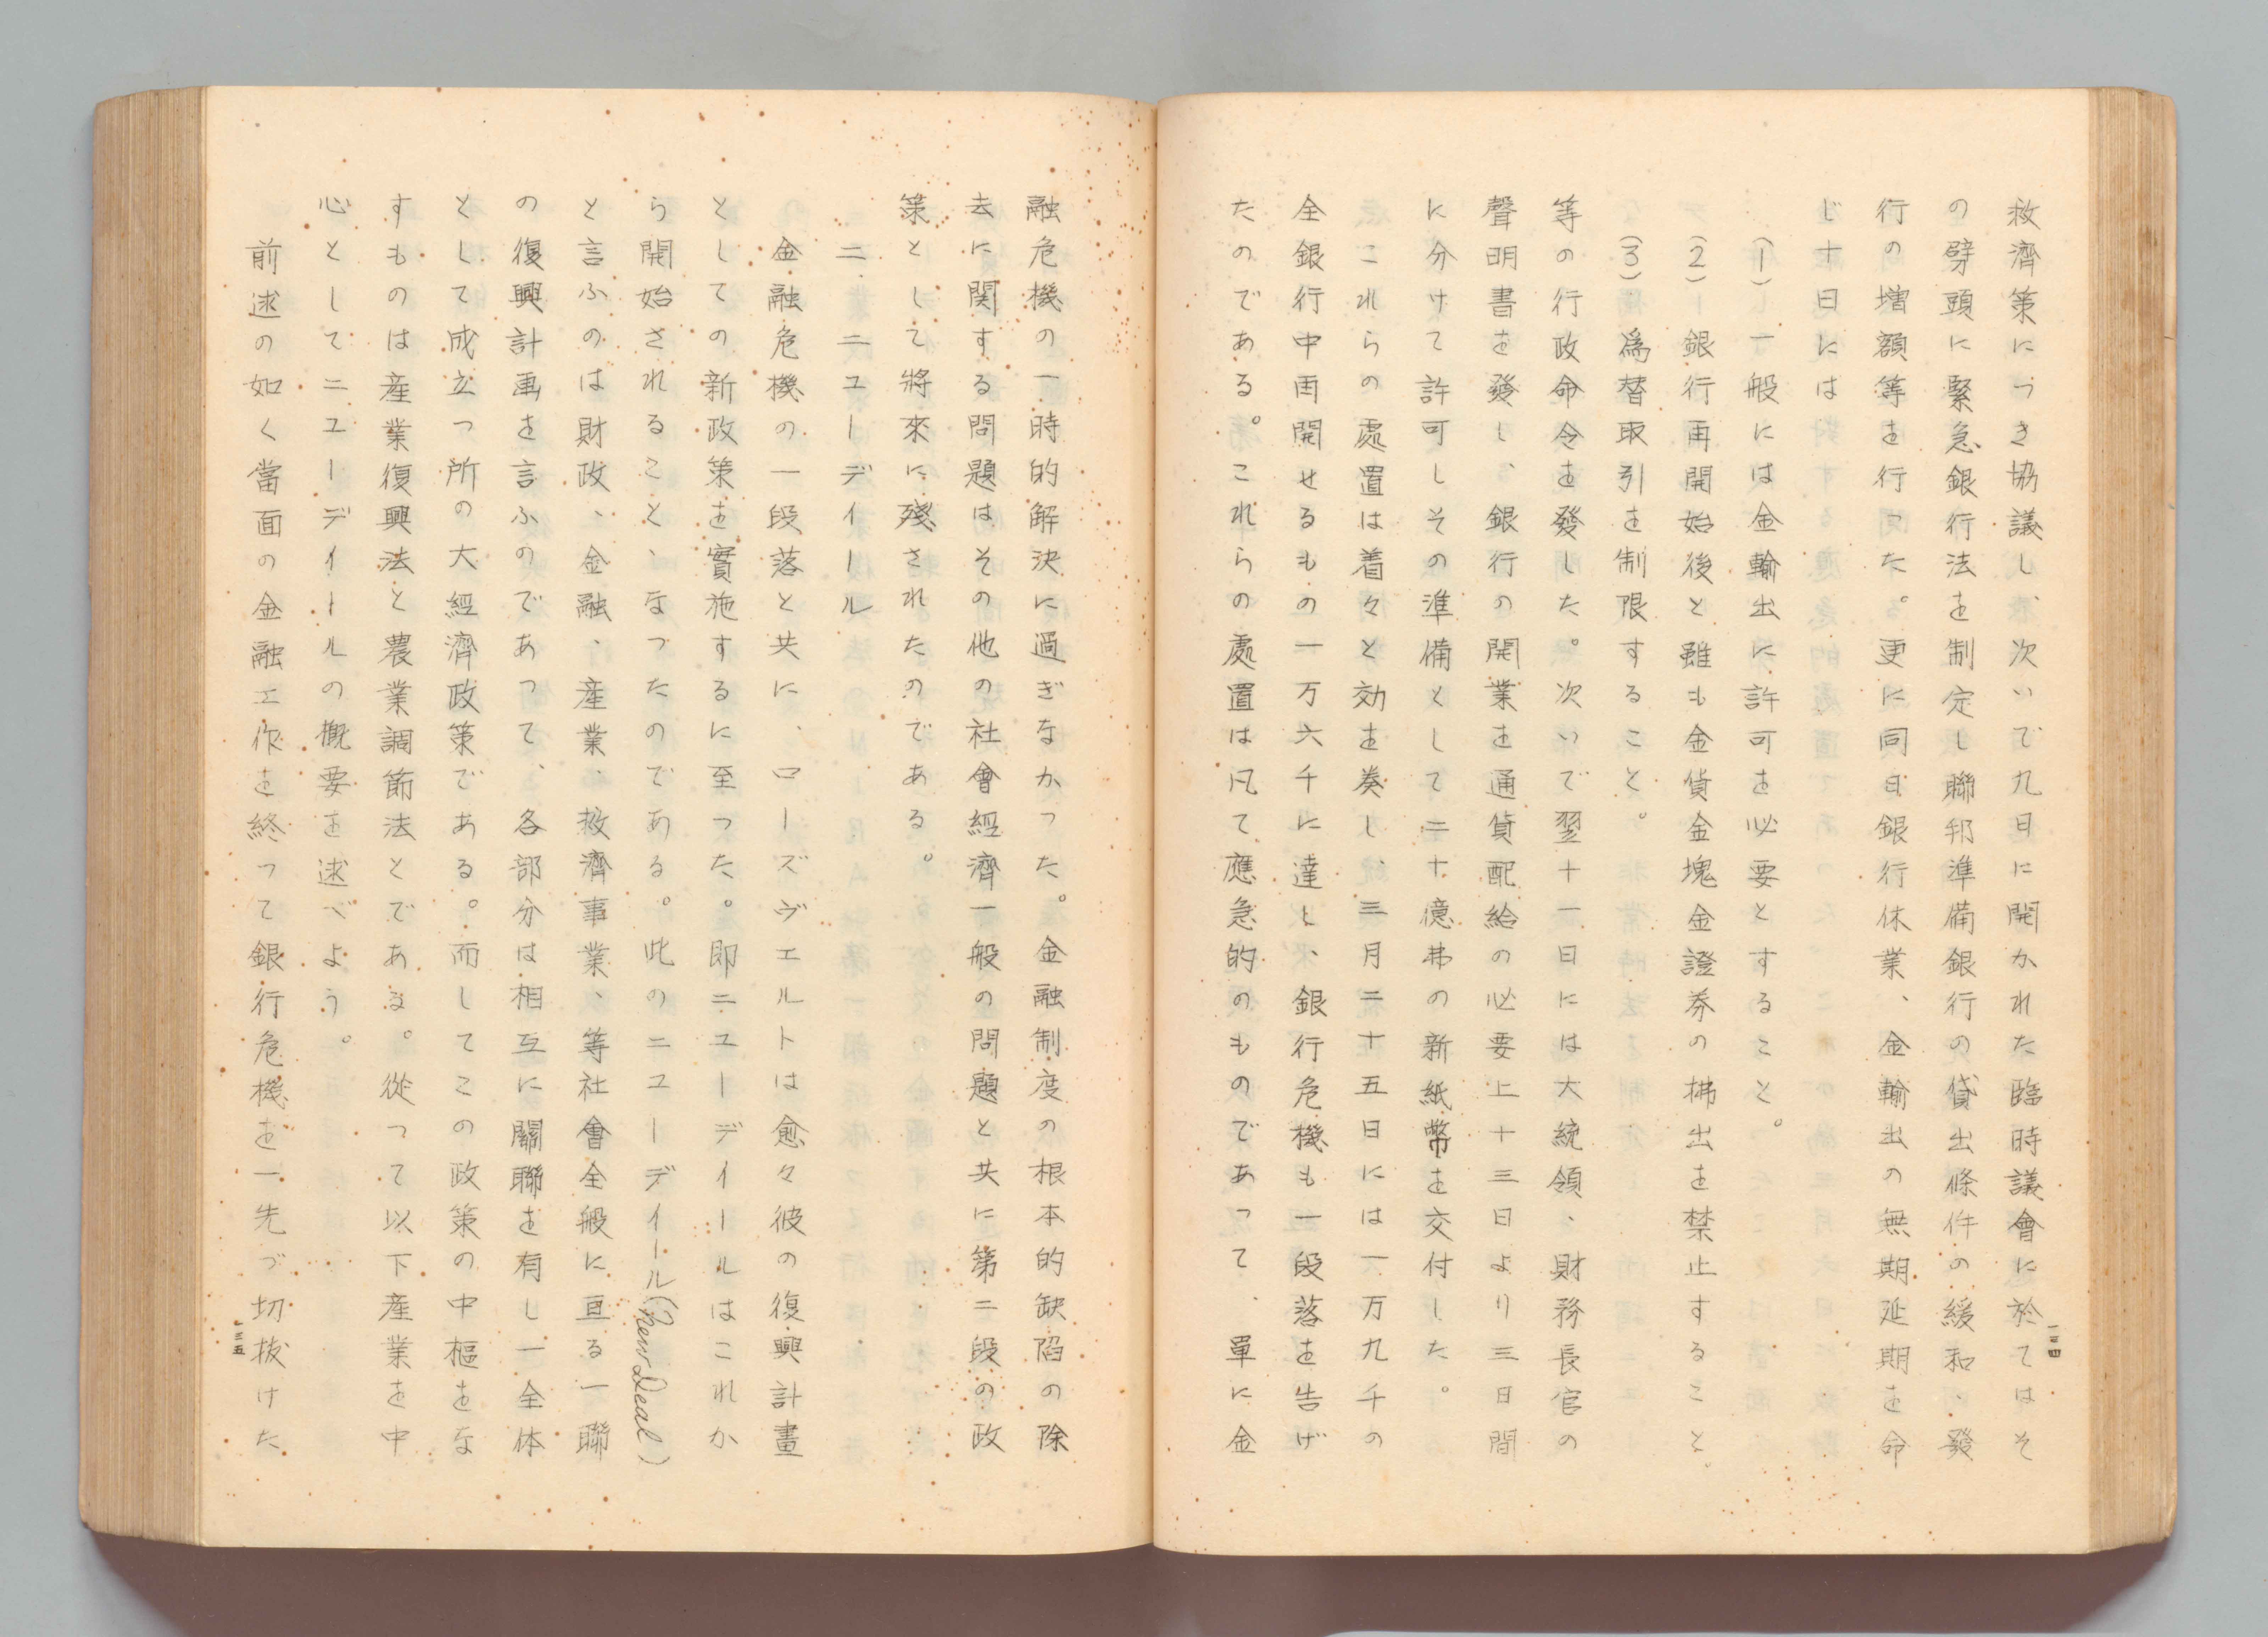 救濟策につき協議し、次いで九日に開かれた臨時議會に於てはそ
の劈頭に緊急銀行法を制定し聯邦準備銀行の貸出條件の緩和、發
行の増額等を行った。更に同日銀行休業、金輸出の無期延期を命
じ十日には
(1) 一般には金輸出に許可を必要とすること。
(2) 銀行再開始後と雖も金貨金塊金證券の拂出を禁止すること。
(3) 爲替取引を制限すること。
等の行政命令を發した。次いで翌十一日には大統領、財務長官の
聲明書を發し、銀行の開業を通貨配給の必要上十三日より三日間
に分けて許可しその準備として二十億弗の新紙幣を交付した。
これらの處置は着々と効を奏し、三月二十五日には一万九千の
全銀行中再開せるもの一万六千に達し、銀行危機も一段落を告げ
たのである。これらの處置は凡て應急的のものであって、單に金
一三四
融危機の一時的解決に過ぎなかった。金融制度の根本的缺陷の除
去に関する問題はその他の社會經濟一般の問題と共に第二段の政
策として將來に殘されたのである。
二、ニューデイール
金融危機の一段落と共に、ローズヴエルトは愈々彼の復興計畫
としての新政策を實施するに至った。即ニユーデイールはこれか
ら開始されること、なったのである。此のニユーデイール(New Deal)
と言ふのは財政、金融、産業、救濟事業、等社會全般に亘る一聯
の復興計画を言ふのであつて、各部分は相互に關聯を有し一全体
として成立つ所の大經濟政策である。而してこの政策の中樞をな
すものは産業復興法と農業調節法とである。從って以下産業を中
心としてニユーデイールの概要を逑べよう。
前逑の如く當面の金融工作を終って銀行危機を一先づ切抜けた
一三五